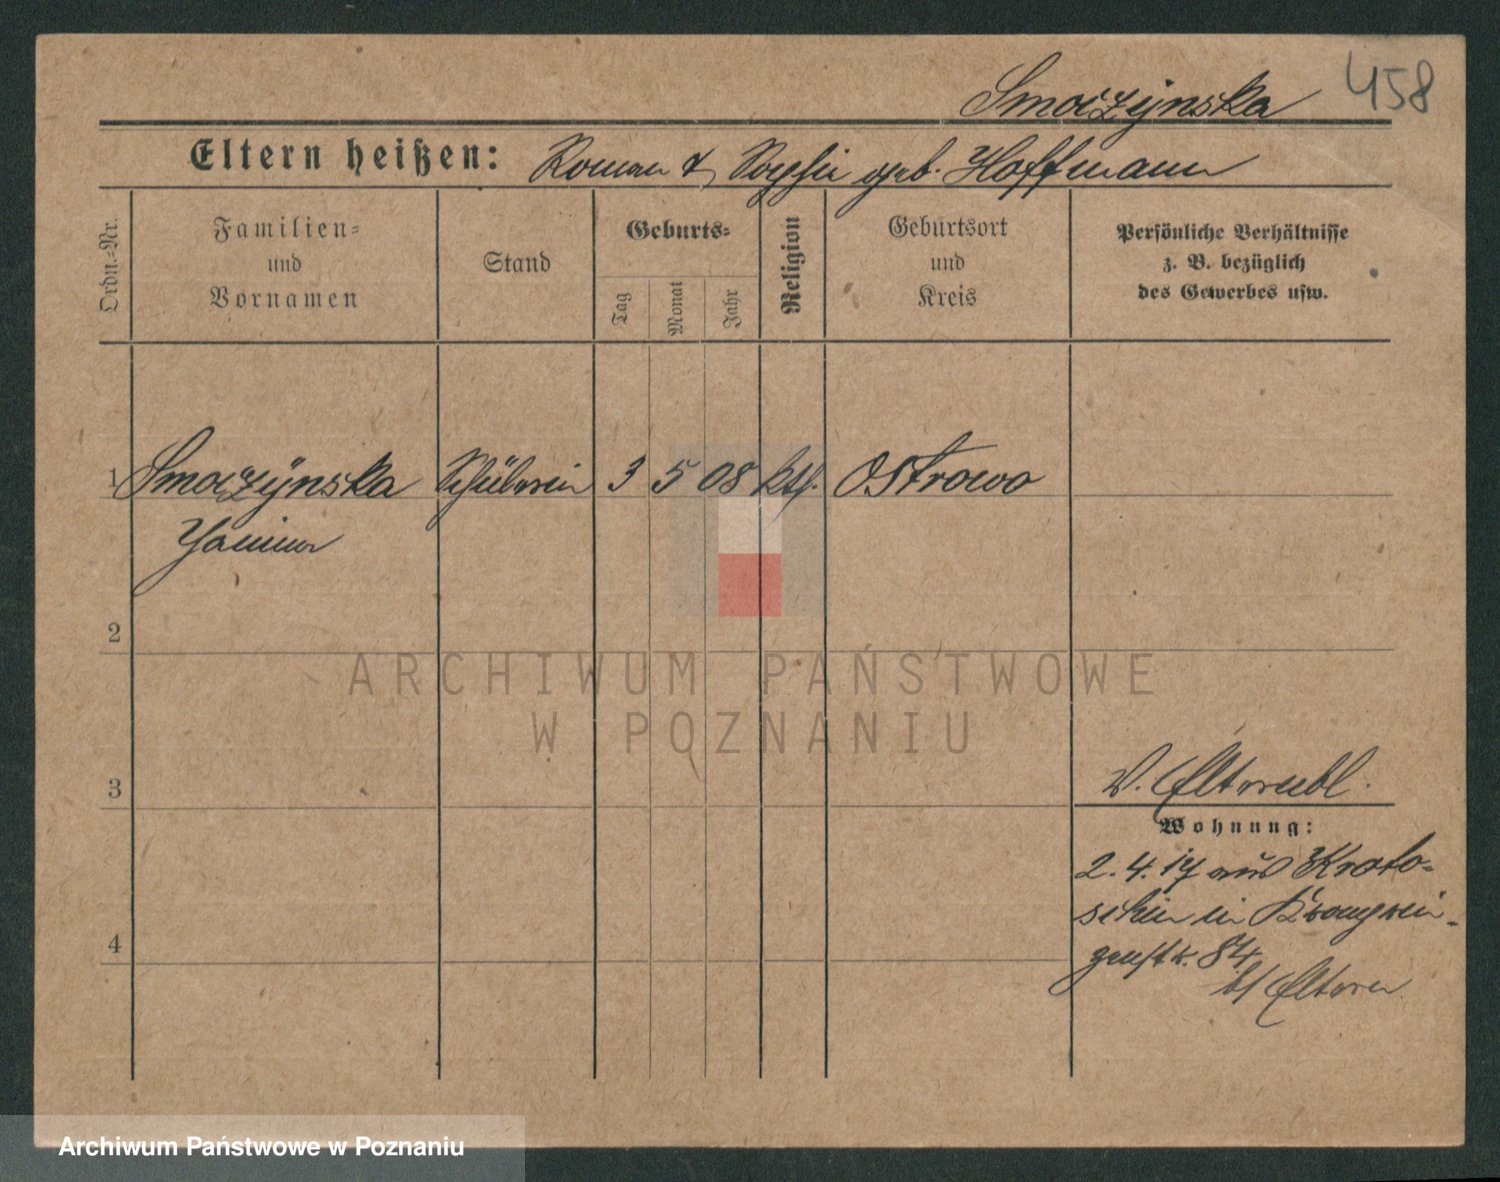 458
Smoczynska
Eltern heißen: Roman & Sophie geb. Hoffmann
Ordn.-Nr.
Familien-
und
Vornamen
Stand
Geburts-
Tag
Monat
Jahr
Religion
Geburtsort
und
Kreis
Persönliche Verhältnisse
z. B. bezüglich
des Gewerbes usw.
1 Smoczynska Schülerin 3 5 08 kth. Ostrowo
Janina
2
3
4
Wohnung:
2.4.17 aus Kroto-
schin in Kronprin-
zenstr. 84.
b/ Eltern
ARCHIWUM PAŃSTWOWE
W POZNANIU
Archiwum Państwowe w Poznaniu